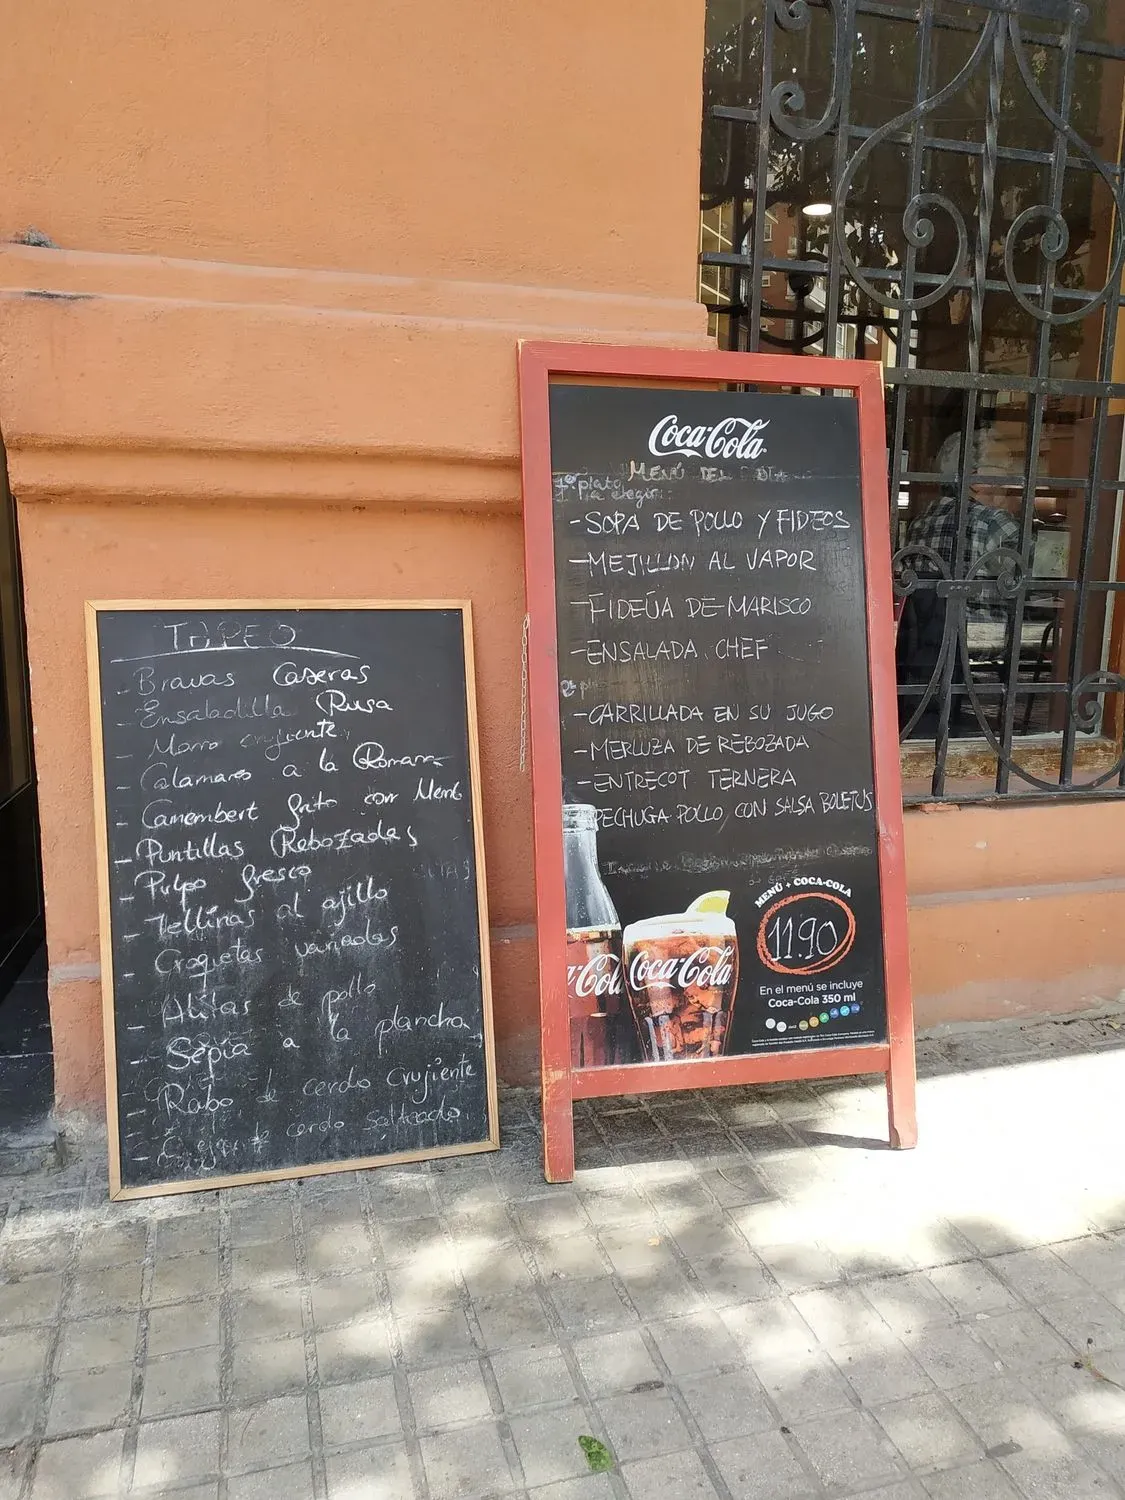 TAPEO
- Bravas Caseras
- Ensaladilla Rusa
- Morro crujiente
- Calamares a la Romana
- Camembert frito con Merm
- Puntillas Rebozadas
- Pulpo fresco
- Tellinas al ajillo
- Croquetas variadas
- Alitas de pollo
- Sepia a la plancha
- Rabo de cerdo crujiente
- cerdo salteado
Coca-Cola
MENÚ DEL DÍA
1º plato
a elegir:
-SOPA DE POLLO Y FIDEOS
-MEJILLON AL VAPOR
-FIDEÚA DE MARISCO
-ENSALADA CHEF
-CARRILLADA EN SU JUGO
-MERLUZA DE REBOZADA
-ENTRECOT TERNERA
PECHUGA POLLO CON SALSA BOLETUS
MENÚ + COCA-COLA
11.90
En el menú se incluye
Coca-Cola 350 ml
Coca-Cola
Coca-Cola